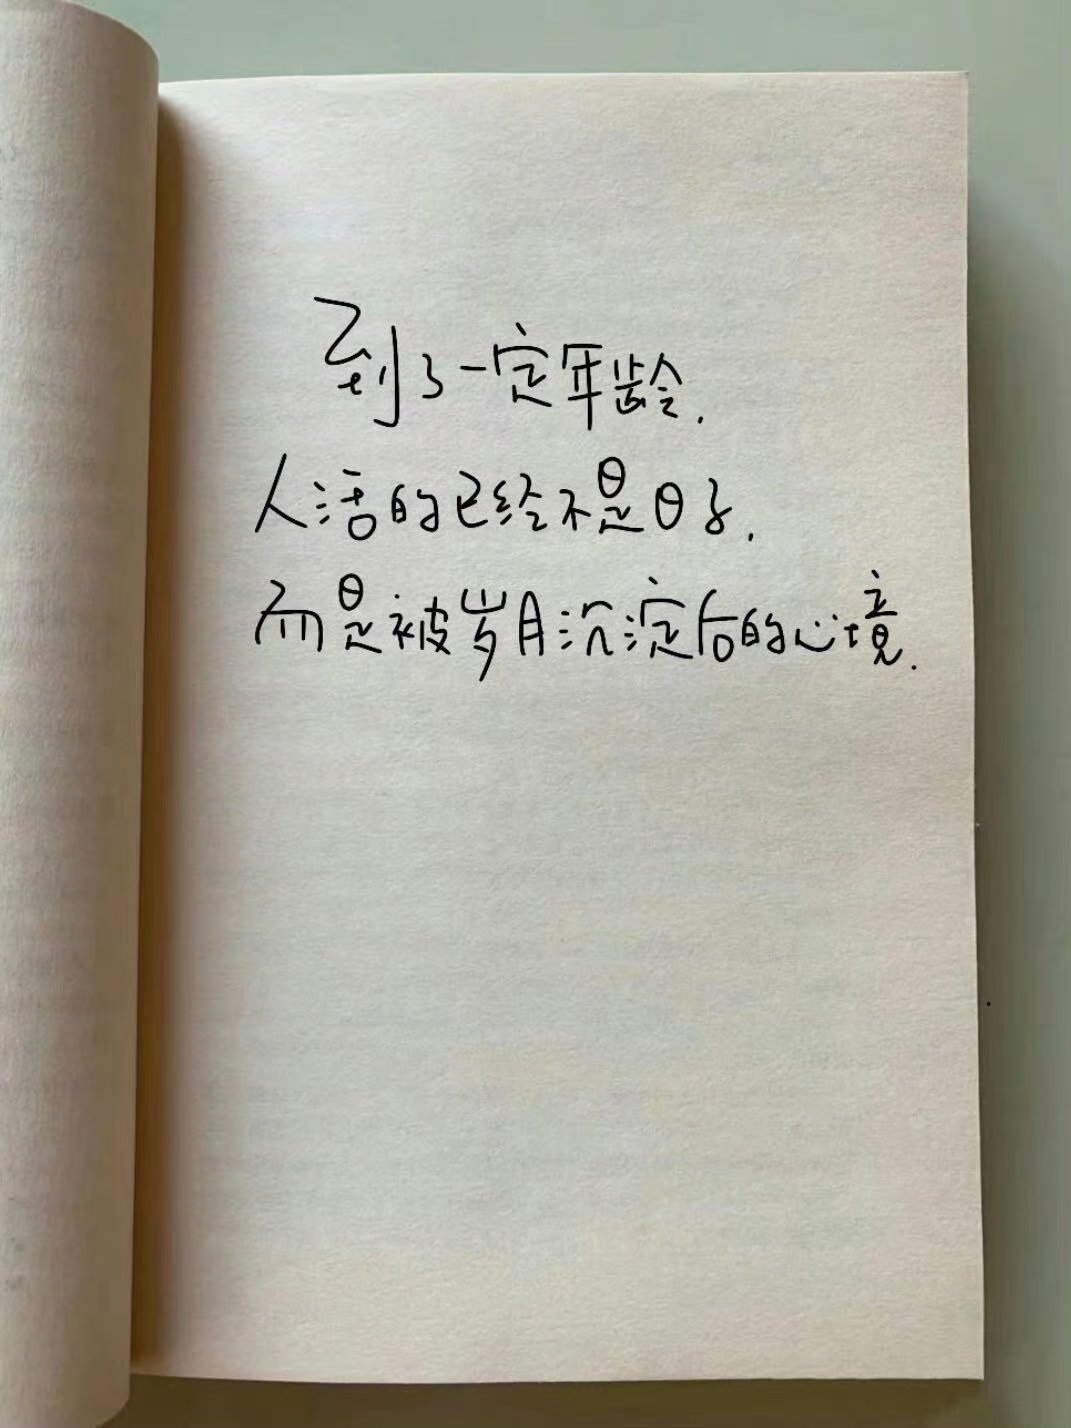 到了一定年龄.
人活的已经不是日子.
而是被岁月沉淀后的心境.